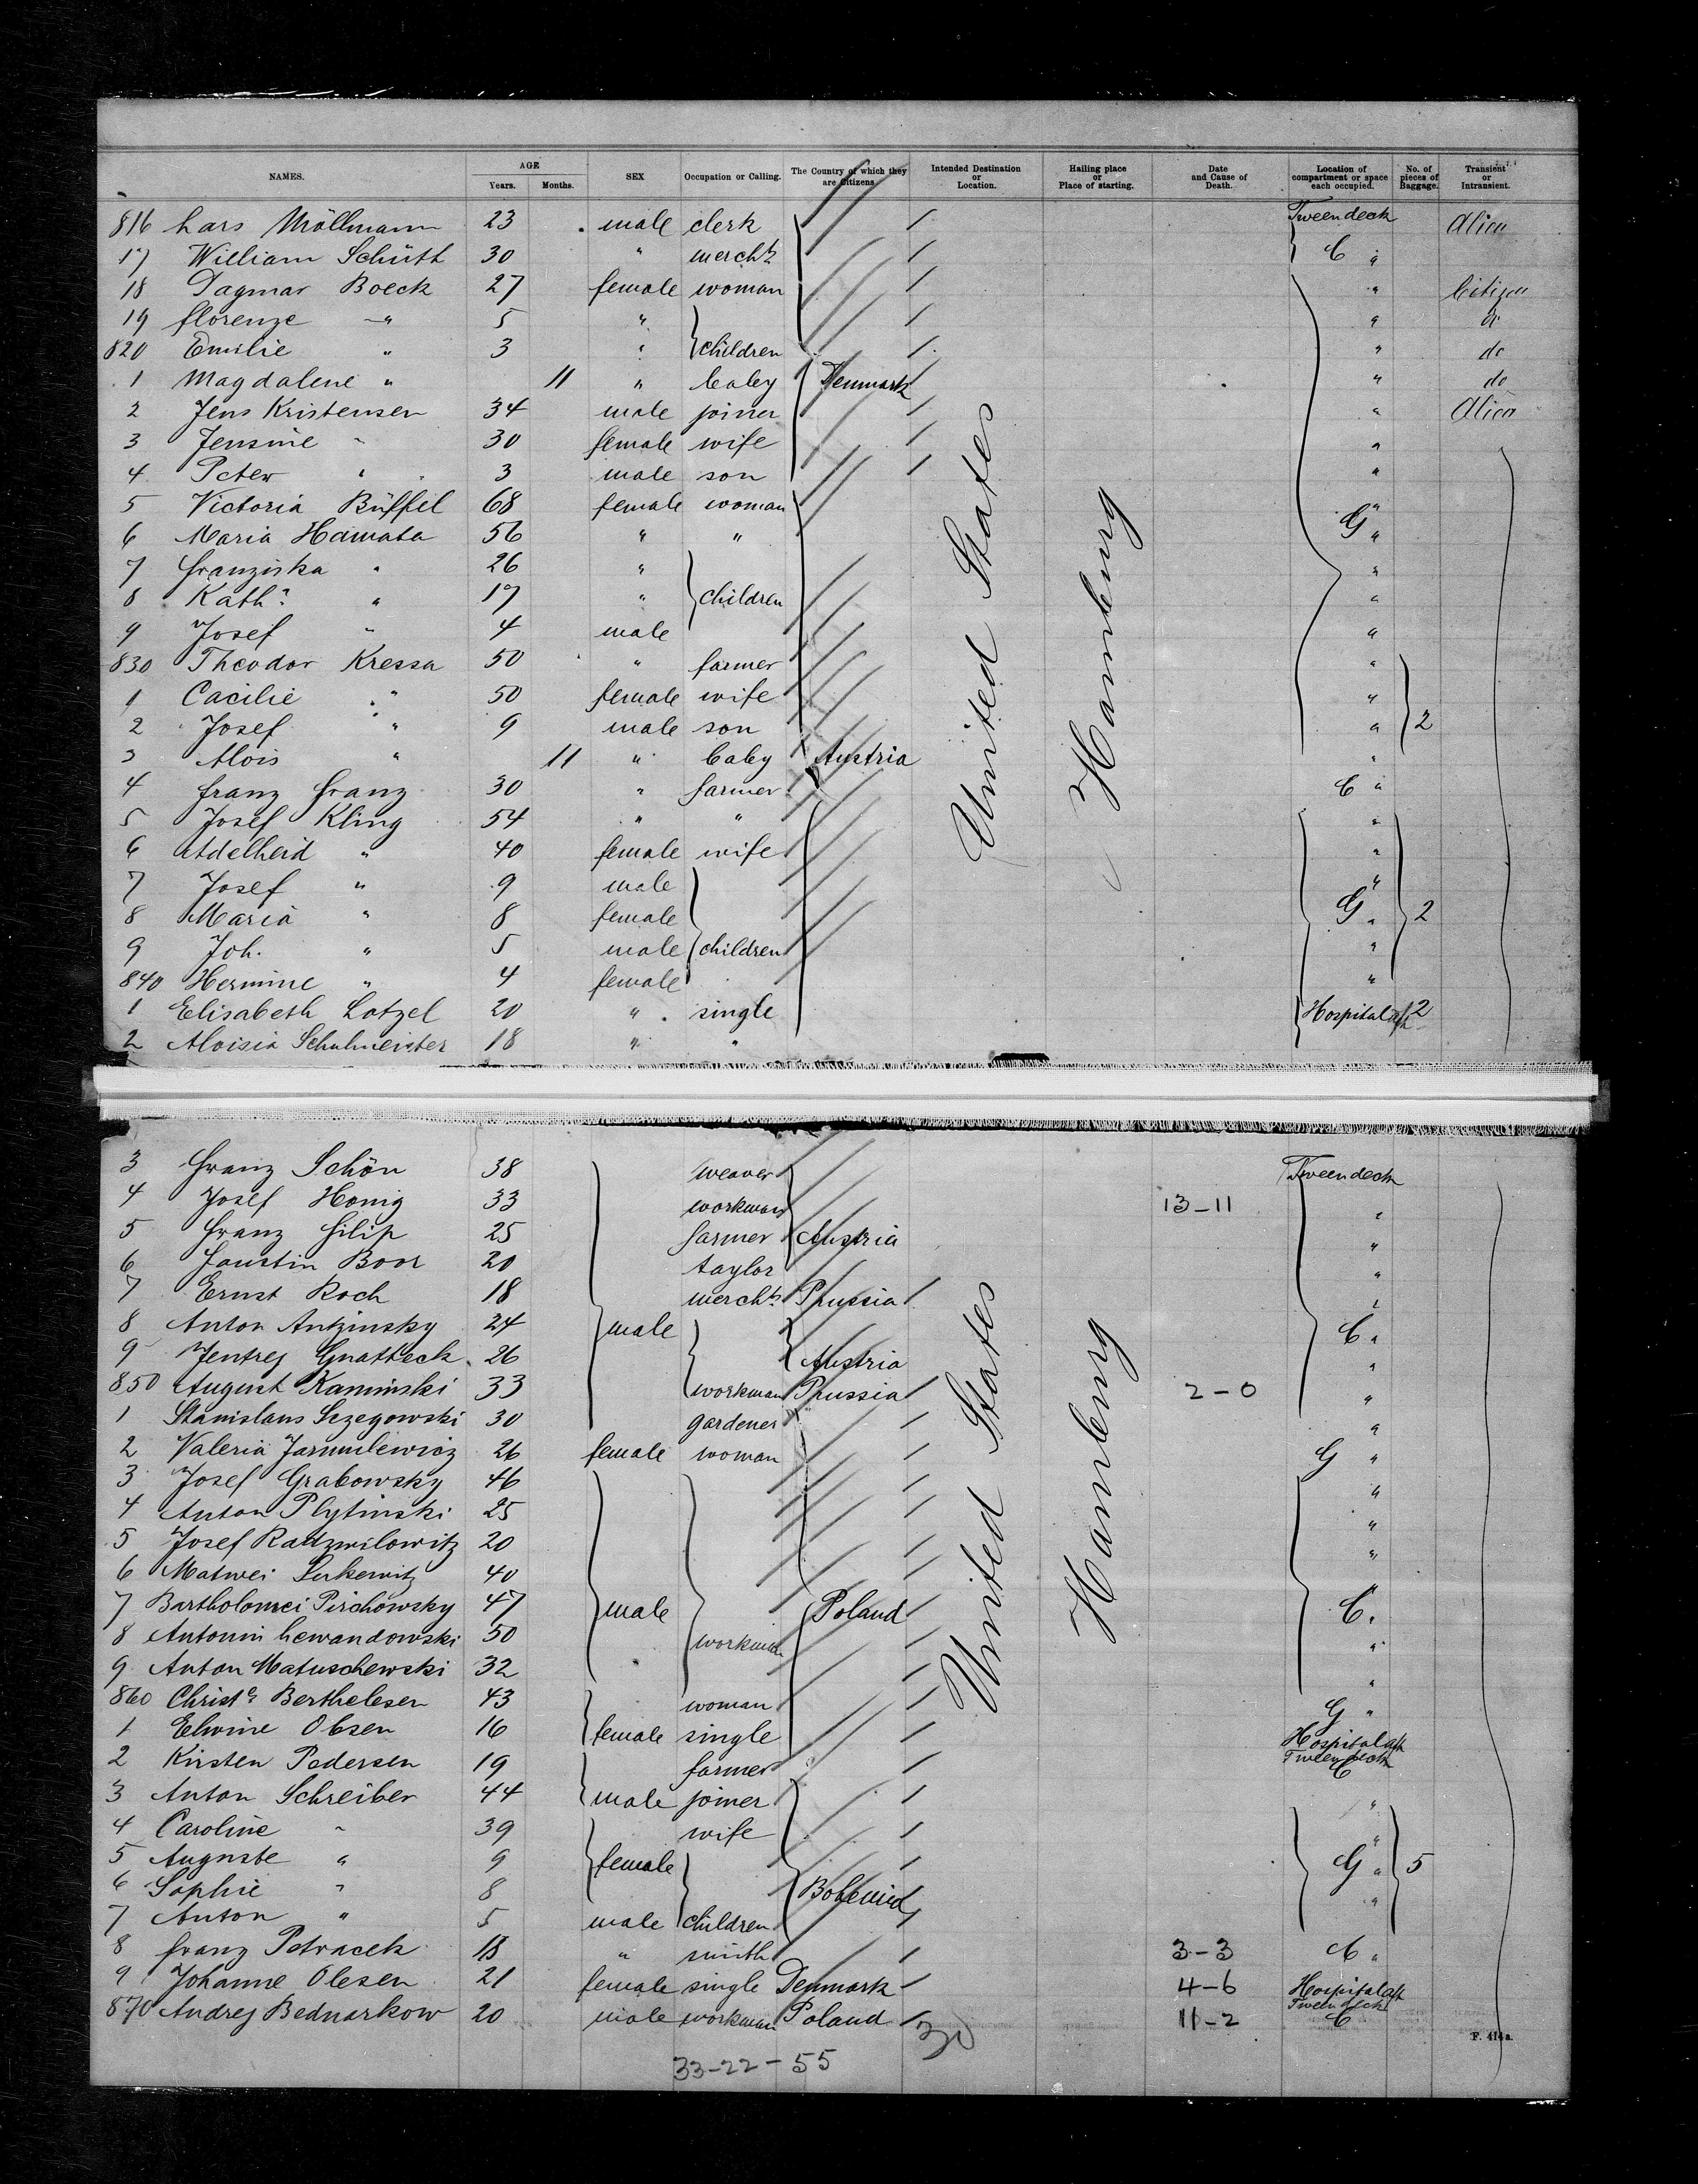 NAMES. AGE Years. Months. SEX Occupation or Calling. The Country of which they are Citizens. Intended Destination or Location. Hailing place or Place of starting. Date and Cause of Death. Location of compartment or space each occupied. No. of pieces of Baggage. Transient or Intransient.
816 Lars Möllmann 23 male clerk Tweendeck Alien
17 William Schüth 30 " mercht. C "
18 Dagmar Boeck 27 female woman " Citizen
19 Florenze " 5 " " do
820 Emilie " 3 " children " do
1 Magdalene " 11 " baby Denmark " do
2 Jens Kristensen 34 male joiner " Alien
3 Jensine " 30 female wife "
4 Peter " 3 male son "
5 Victoria Büffel 68 female woman "
6 Maria Hamata 56 " " G "
7 Franziska " 26 " "
8 Kath. " 17 " children "
9 Josef " 4 male "
830 Theodor Kressa 50 " farmer "
1 Cacilie " 50 female wife "
2 Josef " 9 male son " 2
3 Alois " 11 " baby Austria "
4 Franz Franz 30 " farmer C "
5 Josef Kling 54 " " "
6 Adelheid " 40 female wife "
7 Josef " 9 male "
8 Maria " 8 female G " 2
9 Joh. " 5 male children "
840 Hermine " 4 female "
1 Elisabeth Lotzel 20 " single Hospital aft 2
2 Aloisia Schulmeister 18 " "
United States
Hamburg
3 Franz Schön 38 weaver Tweendeck
4 Josef Honig 33 workman 13-11 "
5 Franz Filip 25 farmer Austria "
6 Faustin Boor 20 taylor "
7 Ernst Roch 18 mercht. Prussia "
8 Anton Antzinsky 24 male C "
9 Jentrej Gnatteck 26 Austria "
850 August Kaminski 33 workman Prussia 2-0 "
1 Stanislaus Sczegowski 30 gardener "
2 Valeria Jarmulewicz 26 female woman G "
3 Josef Grabowsky 46 "
4 Anton Plytinski 25 "
5 Josef Radzwilowitz 20 "
6 Matwei Serkewitz 40
7 Bartholomei Pirchowsky 47 male Poland C "
8 Antonin Lewandowski 50 workmen "
9 Anton Matuschewski 32 "
860 Christe. Berthelesen 43 woman G "
1 Elwine Olsen 16 female single Hospital aft
2 Kirsten Pedersen 19 farmer Tweendeck C
3 Anton Schreiber 44 male joiner "
4 Caroline " 39 wife "
5 Auguste " 9 female G " 5
6 Sophie " 8 Bohemia "
7 Anton " 5 male children
8 Franz Petracek 18 " smith 3-3 C "
9 Johanne Olesen 21 female single Denmark 4-6 Hospital aft
870 Andrej Bednarkow 20 male workman Poland 11-2 Tweendeck C
United States
Hamburg
30
33-22-55
F. 414a.